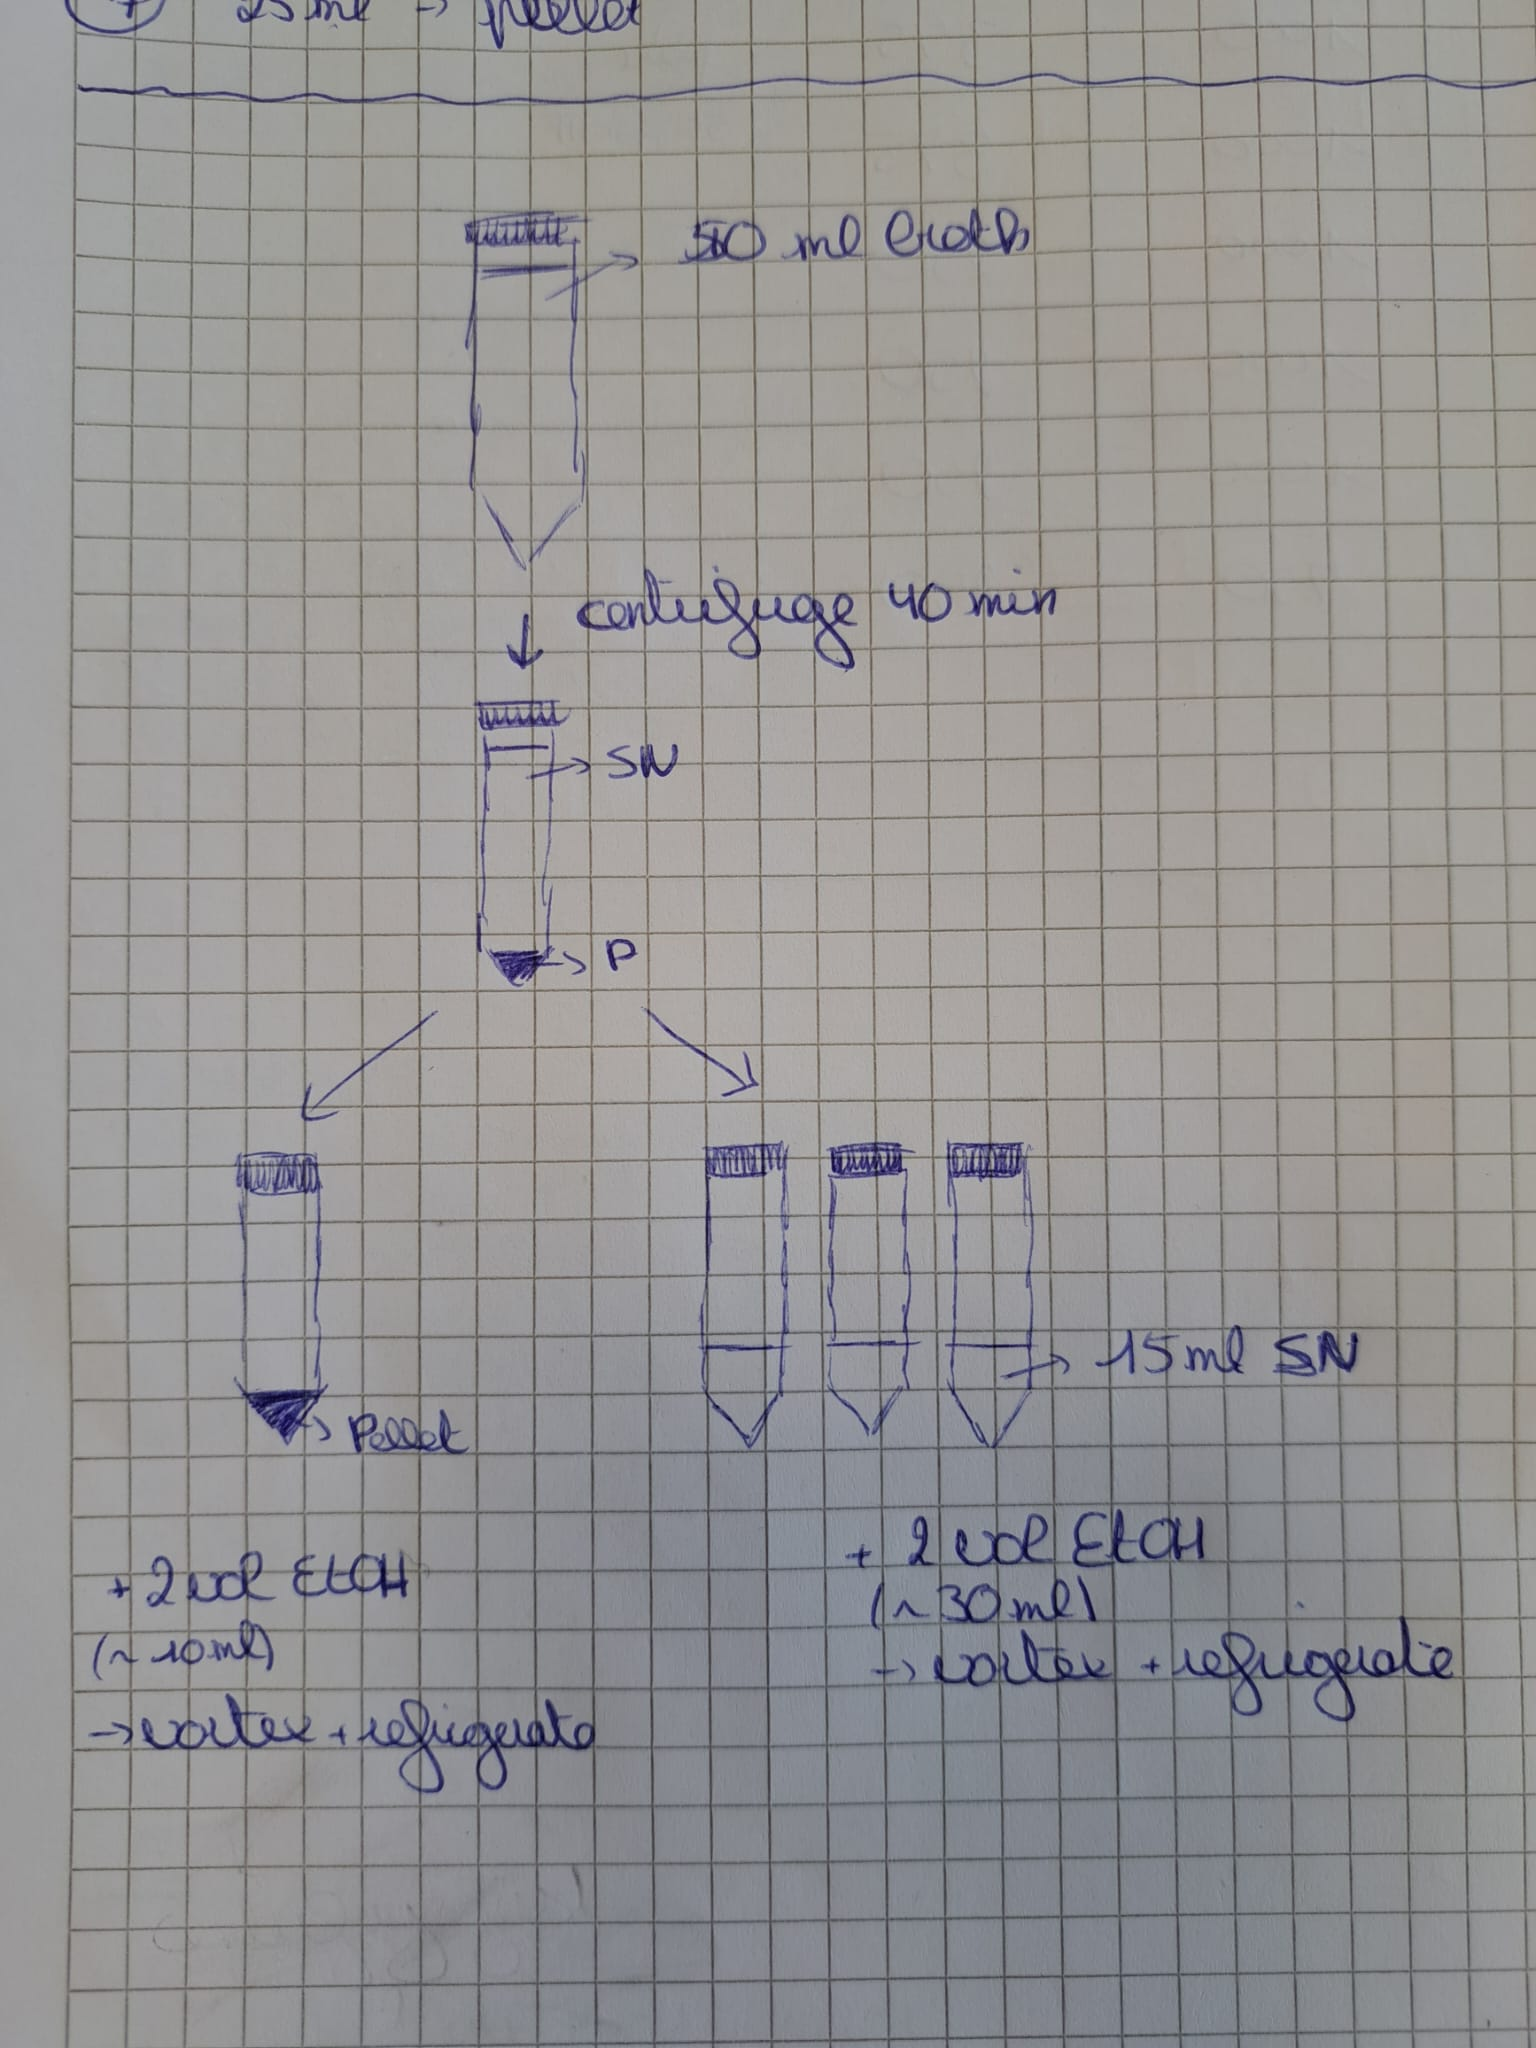 25 ml → pellet
→ 50 ml broth
↓ centrifuge 40 min
→ SN
→ P
→ 15 ml SN
→ Pellet
+ 2 vol EtOH
(~ 10 ml)
→ vortex + refrigerate
+ 2 vol EtOH
(~ 30 ml)
→ vortex + refrigerate